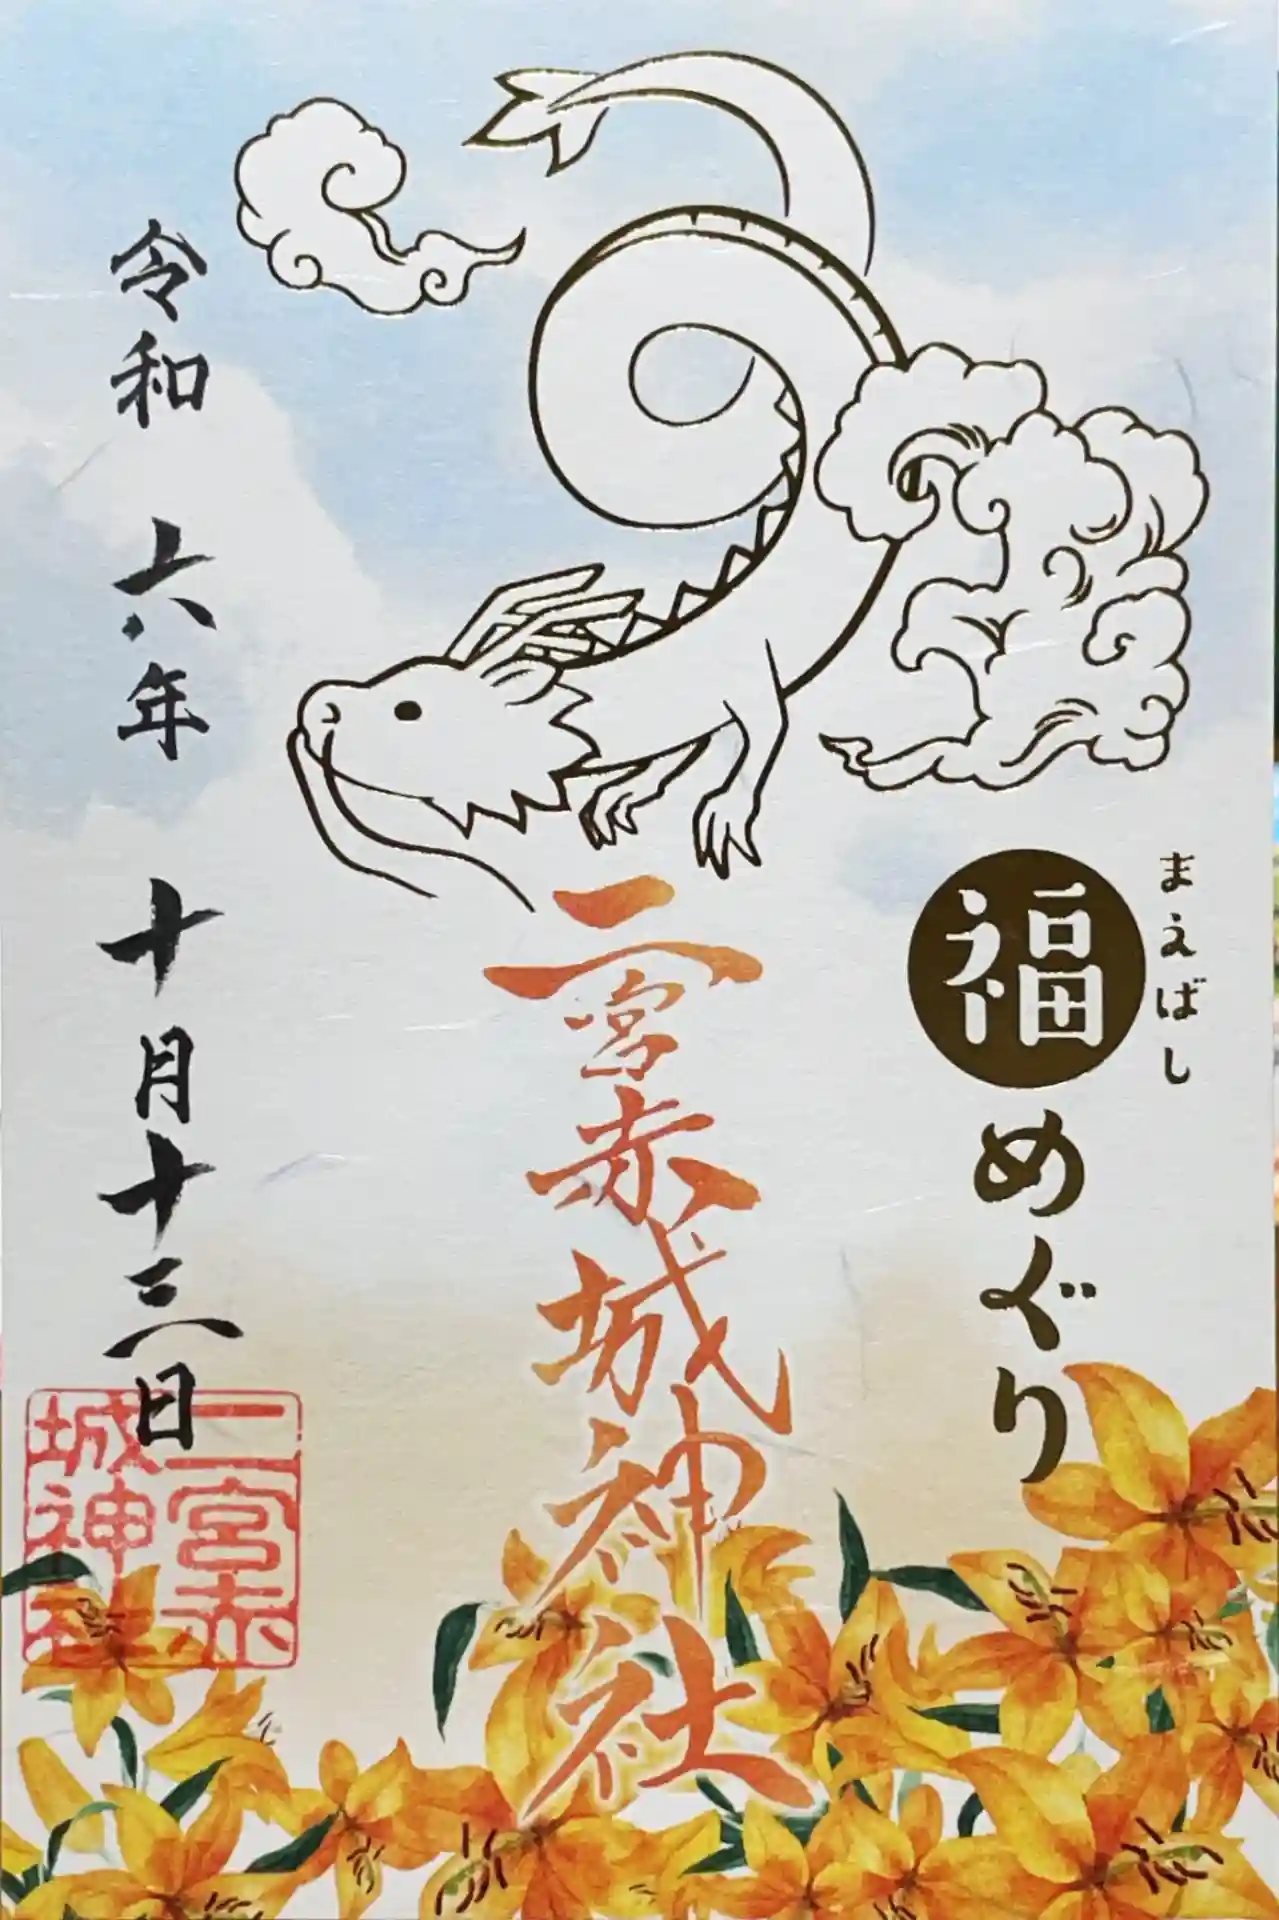 まえばし
福めぐり
二宮赤城神社
令和六年十月十三日
二宮赤
城神社